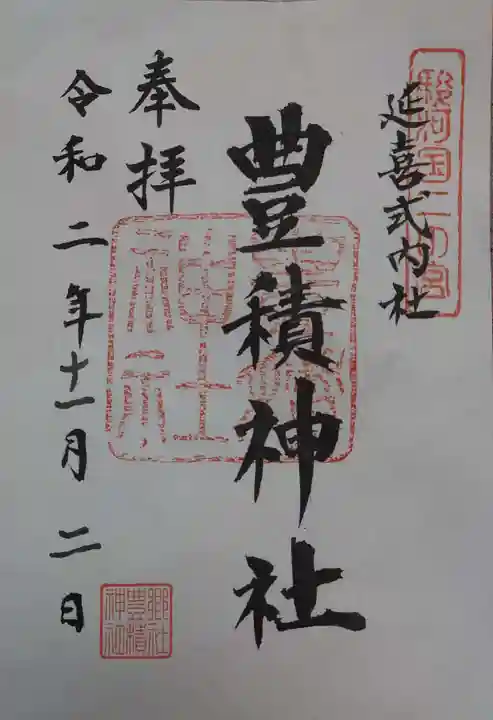 駿河国二の宮
延喜式内社
豊積神社
奉拝
令和二年十一月二日
豊積神社
郷社豊積神社